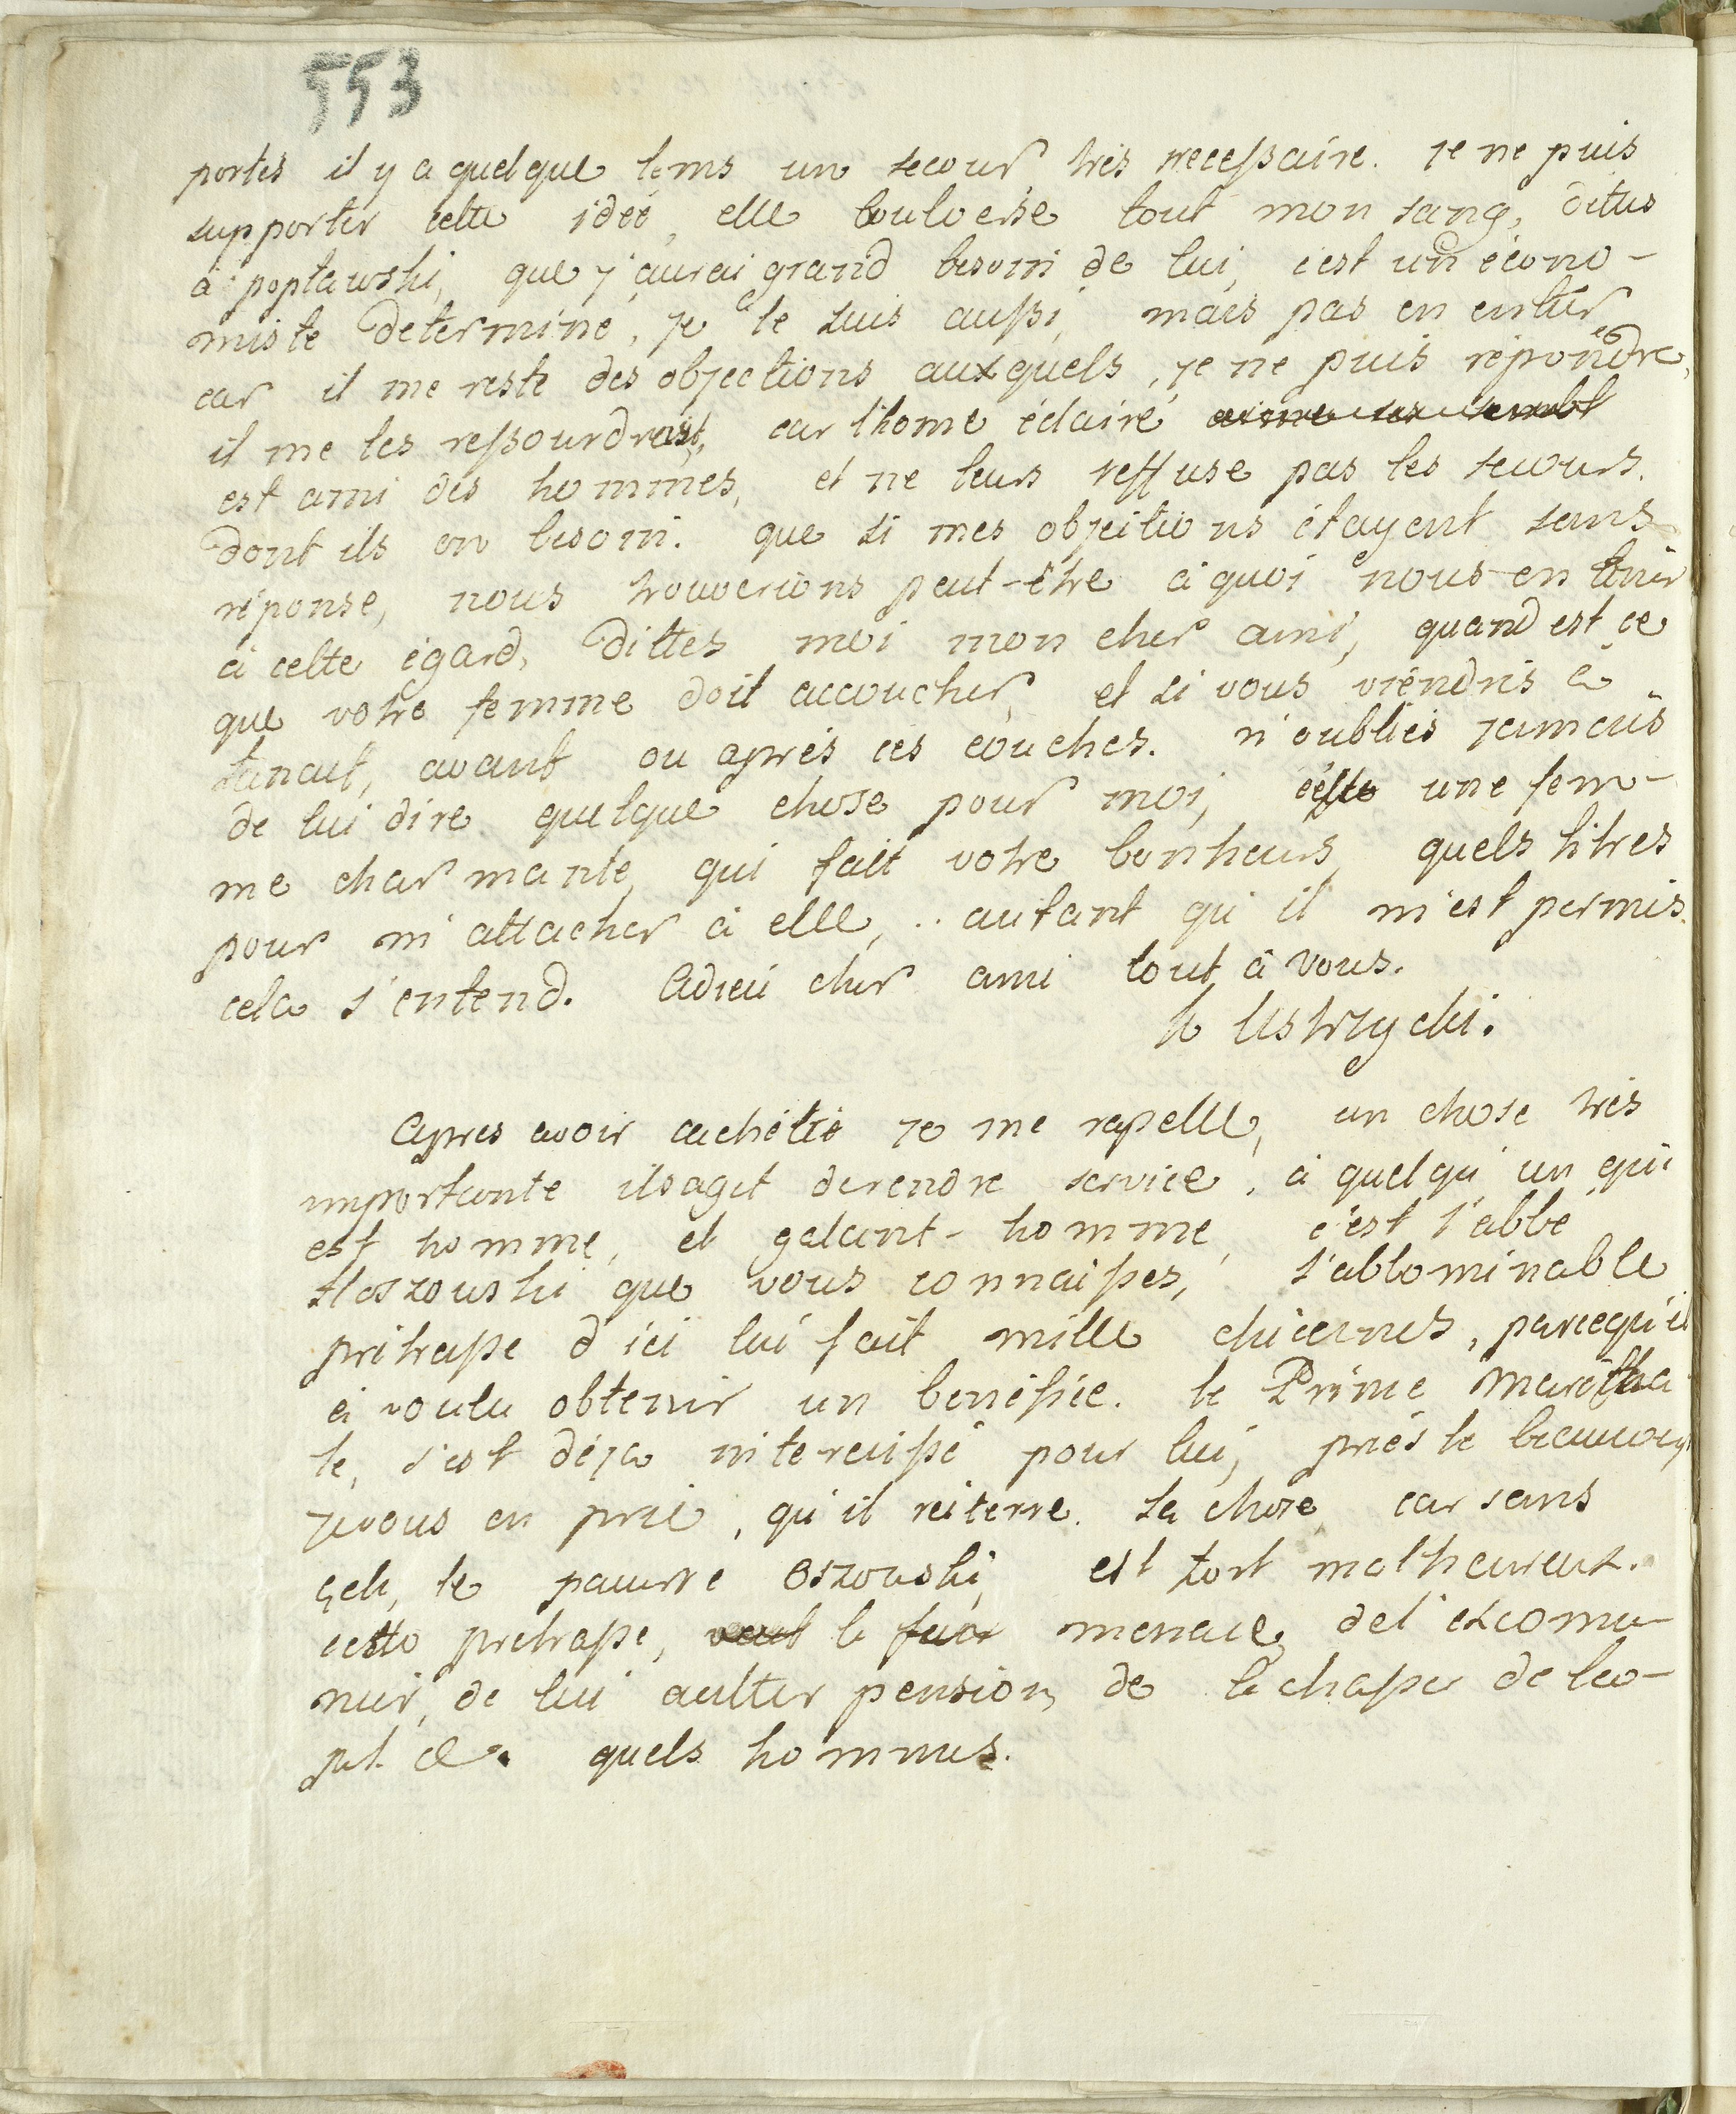 553
portés il y a quelque tems un secour très necessaire. je ne puis
supporter cette idée, elle bouloerse tout mon sang, ditus
à popławski, que j'aurai grand besoin de lui, c'est un écono-
miste determiné, je le suis aussi, mais pas en entier
car il me reste des objections auxquels, je ne puis répondre,
il me les ressourdrast, car l'home éclairé
est ami des hommes, et ne leurs reffuse pas les secours.
dont ils on besoin. que si mes objections étayent sans
réponse, nous trouverions peut-être à quoi nous en tenir
à cette égard, dittes moi mon cher ami, quand est ce
que votre femme doit accoucher, et si vous viendrés à
sanout, avant ou après ces couches. n'oubliés jamais
de lui dire quelque chose pour moi, c'este une fem-
me charmante, qui fait votre bonheurs, quels titres
pour m'attacher à elle, autant qu'il m'est permis.
cela s'entend. Adieu cher ami tout à vous.
Ustrzycki.
Apres avoir cachétté je me rapelle, un chose très
importante ilsagit derendre service, à quelqu'un qui
est homme, et galant-homme, c'est l'abbé
que vous connaisses, l'abbominable
pritrasse d'ici lui fait mille chicannes, parcequ'il
à voulu obtenir un benefice. le Prince Marécha
le, s'est déja interressé pour lui, priés le beaucoup
jevous en prie, qu'il reiterre. la chose, car sans
çela, le pauvre Oszowski, est fort malheureux.
cette pretrasse, le menace, del'excomu-
nier, de lui aulter pension, de le chasser de leo-
pol. &. quels hommes.